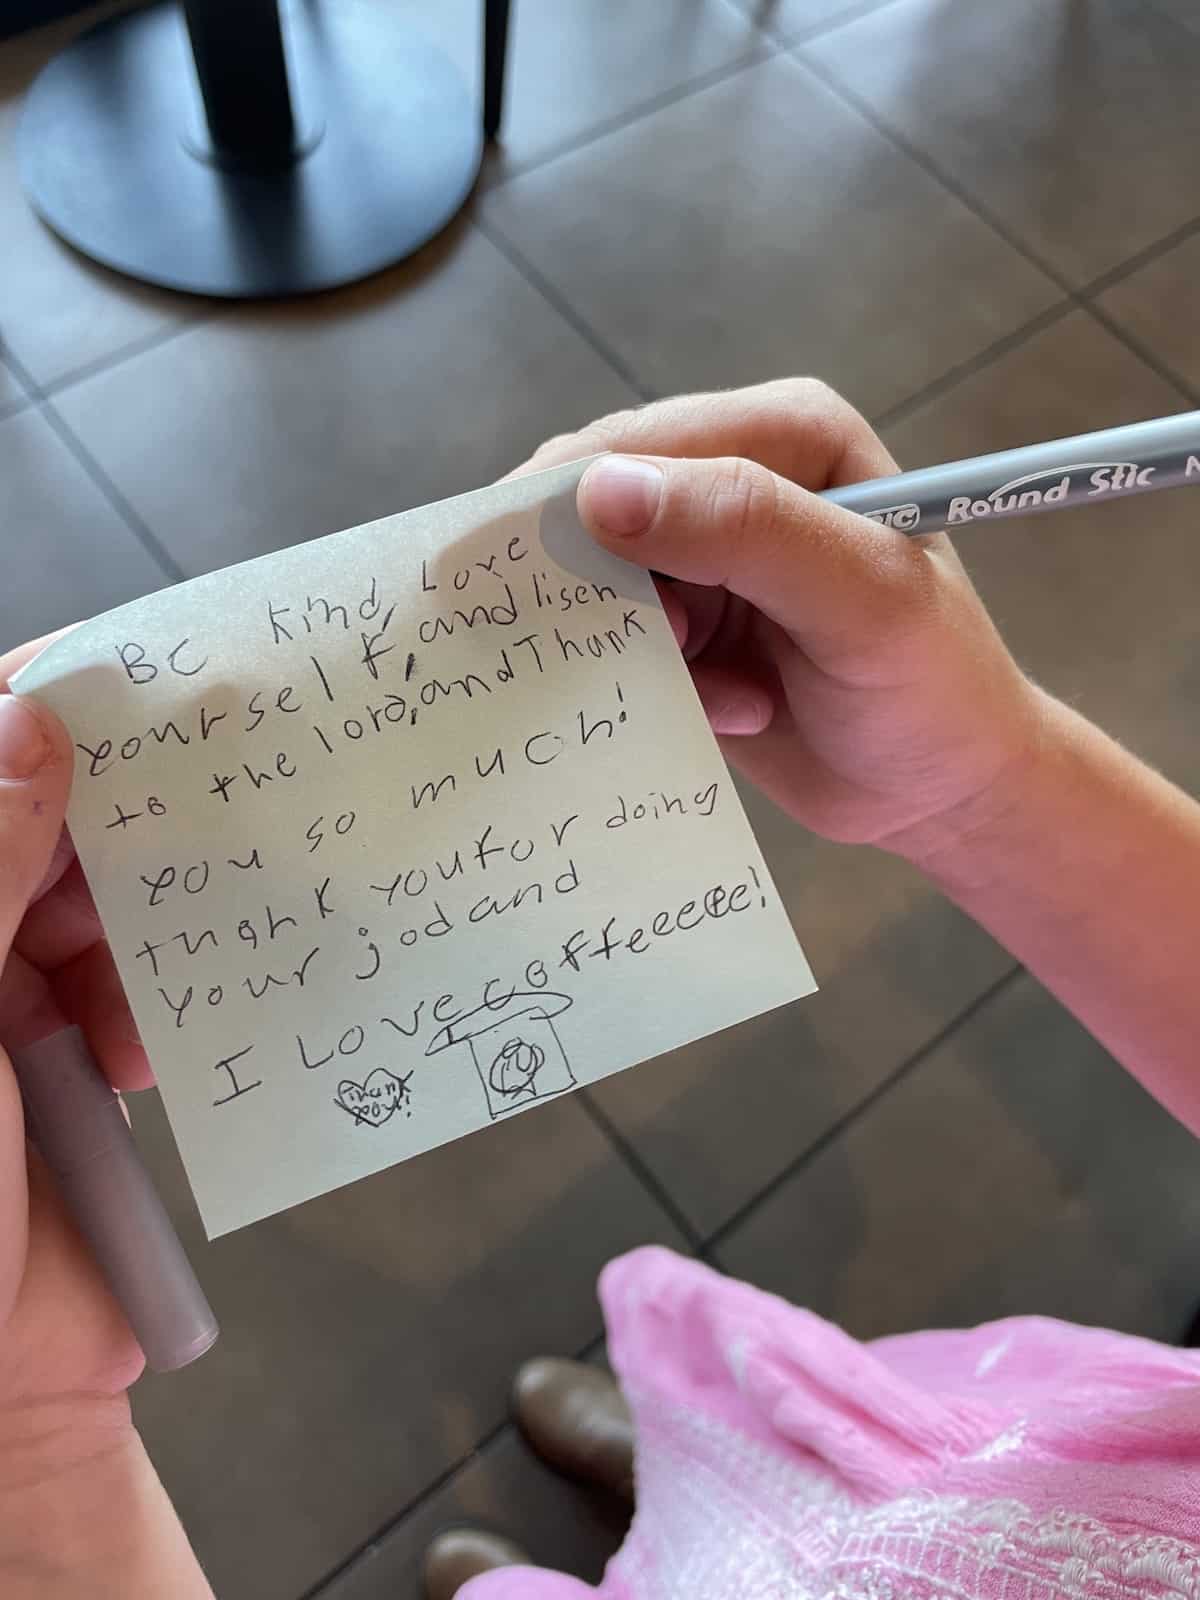 BE Kind, Love
yourself, and lisen
to the lord, and Thank
you so much!
thank you for doing
your jod and
I Love coffeeeeee!
Thank
you!
BIC Round Stic